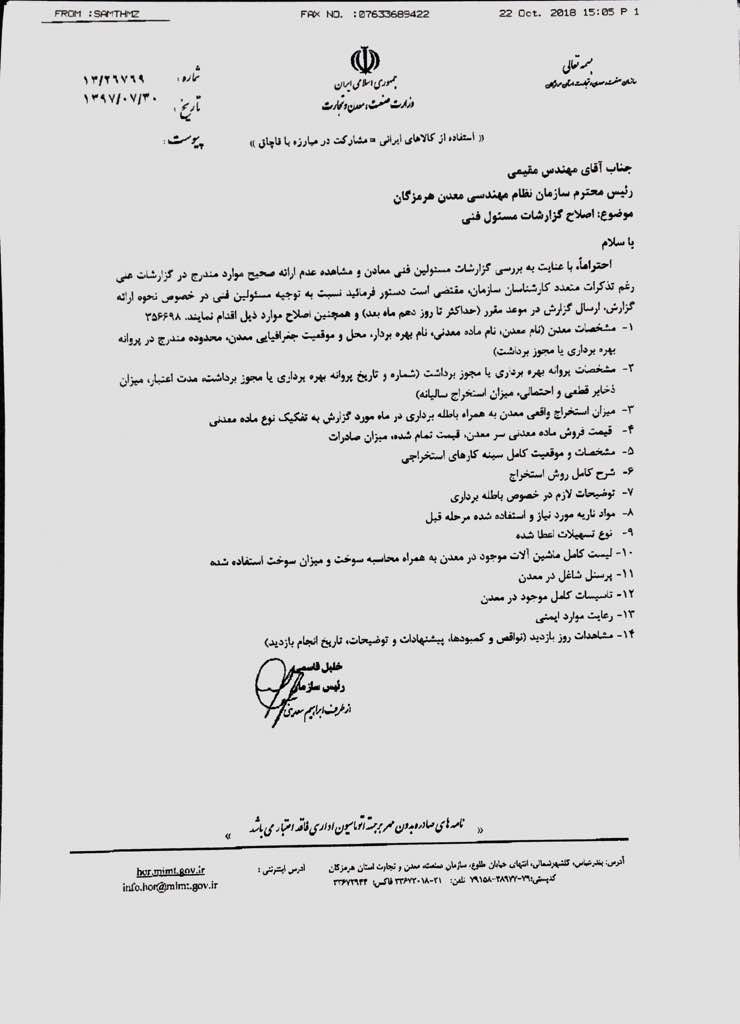 FROM : SAMTHMZ FAX NO. : 07633689422 22 Oct. 2018 15:05 P 1
بسمه تعالی
جمهوری اسلامی ایران
وزارت صنعت، معدن و تجارت
سازمان صنعت، معدن و تجارت استان هرمزگان
شماره : ۱۳/۲۶۷۶۹
تاریخ : ۱۳۹۷/۰۷/۳۰
پیوست :
« استفاده از کالاهای ایرانی = مشارکت در مبارزه با قاچاق »
جناب آقای مهندس مقیمی
رئیس محترم سازمان نظام مهندسی معدن هرمزگان
موضوع: اصلاح گزارشات مسئول فنی
با سلام
احتراماً، با عنایت به بررسی گزارشات مسئولین فنی معادن و مشاهده عدم ارائه صحیح موارد مندرج در گزارشات علی
رغم تذکرات متعدد کارشناسان سازمان، مقتضی است دستور فرمائید نسبت به توجیه مسئولین فنی در خصوص نحوه ارائه
گزارش، ارسال گزارش در موعد مقرر (حداکثر تا روز دهم ماه بعد) و همچنین اصلاح موارد ذیل اقدام نمایند. ۳۵۶۶۹۸
۱- مشخصات معدن (نام معدن، نام ماده معدنی، نام بهره بردار، محل و موقعیت جغرافیایی معدن، محدوده مندرج در پروانه
بهره برداری یا مجوز برداشت)
۲- مشخصات پروانه بهره برداری یا مجوز برداشت (شماره و تاریخ پروانه بهره برداری یا مجوز برداشت، مدت اعتبار، میزان
ذخایر قطعی و احتمالی، میزان استخراج سالیانه)
۳- میزان استخراج واقعی معدن به همراه باطله برداری در ماه مورد گزارش به تفکیک نوع ماده معدنی
۴- قیمت فروش ماده معدنی سر معدن، قیمت تمام شده، میزان صادرات
۵- مشخصات و موقعیت کامل سینه کارهای استخراجی
۶- شرح کامل روش استخراج
۷- توضیحات لازم در خصوص باطله برداری
۸- مواد ناریه مورد نیاز و استفاده شده مرحله قبل
۹- نوع تسهیلات اعطا شده
۱۰- لیست کامل ماشین آلات موجود در معدن به همراه محاسبه سوخت و میزان سوخت استفاده شده
۱۱- پرسنل شاغل در معدن
۱۲- تاسیسات کامل موجود در معدن
۱۳- رعایت موارد ایمنی
۱۴- مشاهدات روز بازدید (نواقص و کمبودها، پیشنهادات و توضیحات، تاریخ انجام بازدید)
خلیل قاسمی
رئیس سازمان
از طرف ابراهیم سعدی
« نامه های صادره بدون مهر برجسته اتوماسیون اداری فاقد اعتبار می باشد »
آدرس: بندرعباس، گلشهرشمالی، انتهای خیابان طلوع، سازمان صنعت، معدن و تجارت استان هرمزگان
کدپستی: ۷۹۱۵۸-۲۸۹۷۷-۷۹ تلفن: ۲۱-۳۳۶۷۲۰۱۸ فاکس: ۳۳۶۷۲۹۴۴
آدرس اینترنتی :
hor.mimt.gov.ir
info.hor@mimt.gov.ir